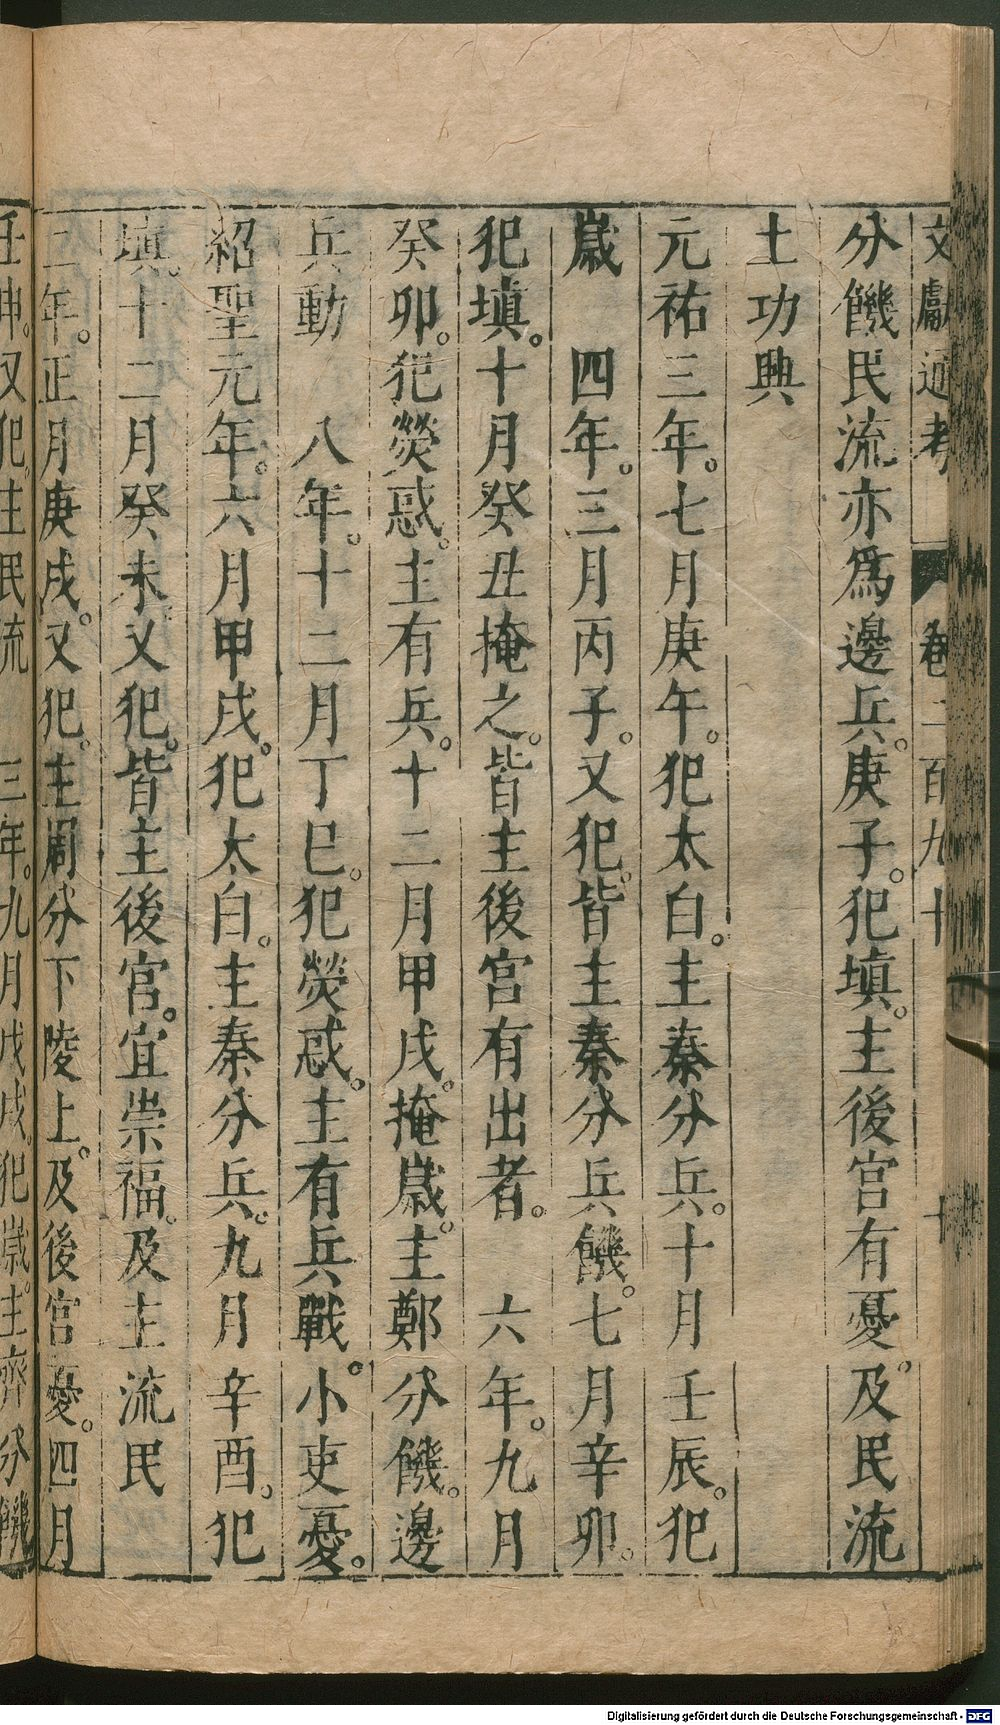 文獻通考 卷二百九十 十
分饑民流亦爲邊兵。庚子。犯填。主後宮有憂。及民流
土功興
元祐三年。七月庚午。犯太白。主秦分兵。十月壬辰。犯
歲 四年。三月丙子。又犯。皆主秦分兵饑。七月辛卯。
犯填。十月癸丑掩之。皆主後宮有出者。 六年。九月
癸卯。犯熒惑。主有兵。十二月甲戌。掩歲。主鄭分饑。邊
兵動 八年。十二月丁巳。犯熒惑。主有兵戰。小吏憂。
紹聖元年。六月甲戌。犯太白。主秦分兵。九月辛酉。犯
填。十二月癸未。又犯。皆主後宮。宜崇福。及主流民
二年。正月庚戌。又犯。主周分下陵上。及後宮憂。四月
壬申。又犯。主民流 三年。九月戊戌。犯歲。主齊分饑
Digitalisierung gefördert durch die Deutsche Forschungsgemeinschaft - DFG